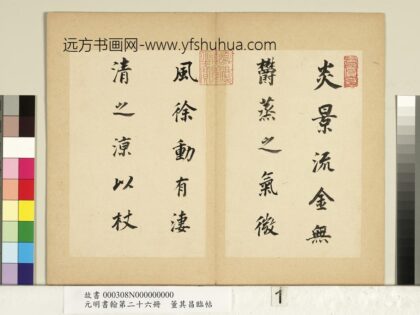 远方书画网-www.yfshuhua.com
炎景流金無
欝蒸之氣微
風徐動有淒
清之涼以杖
故書 000308N000000000
元明書翰第二十六冊 董其昌臨帖
1